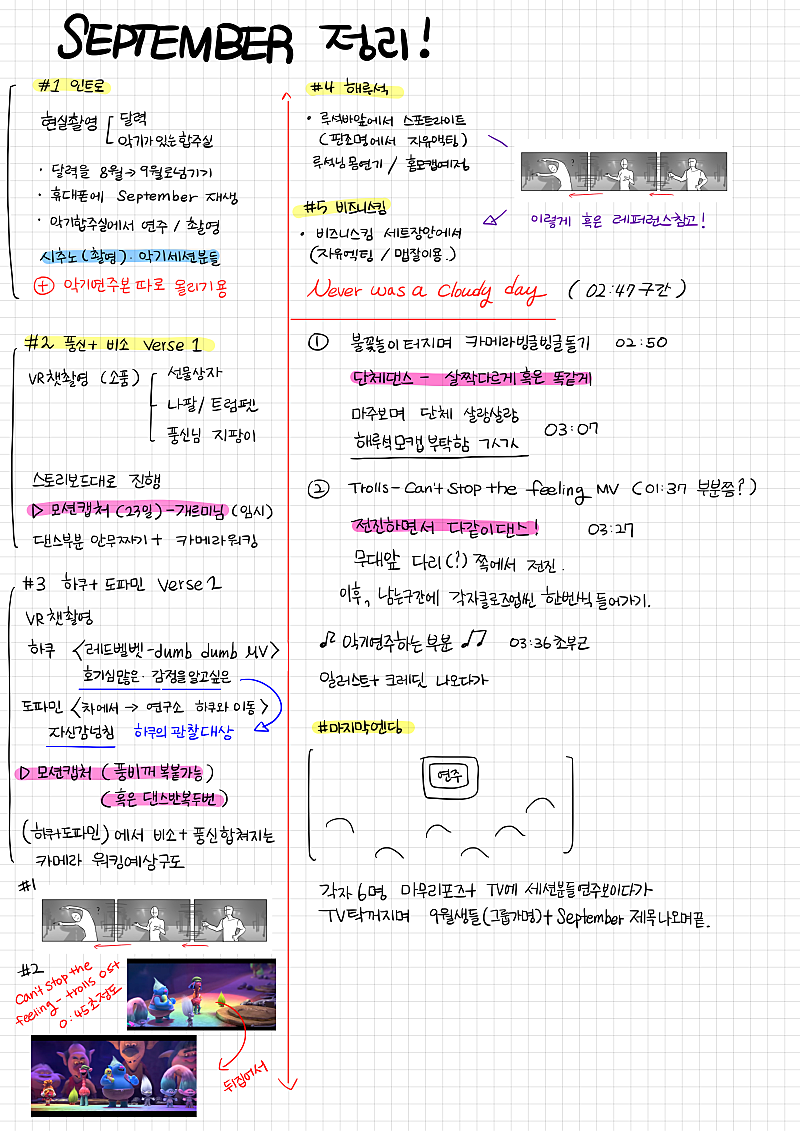 SEPTEMBER 정리!
#1 인트로
현실촬영
달력
악기가 있는 합주실
· 달력을 8월→9월로넘기기
· 휴대폰에 September 재생
· 악기합주실에서 연주 / 촬영
시추노(촬영)· 악기세션분들
+ 악기연주본 따로 올리기용
#2 풍신+ 비소 Verse 1
VR챗촬영 (소품)
선물상자
나팔/트럼펫
풍신님 지팡이
스토리보드대로 진행
▷ 모션캡처 (23일) -개르미님 (임시)
댄스부분 안무짜기 + 카메라워킹
#3 하쿠+ 도파민 Verse 2
VR챗촬영
하쿠 <레드벨벳-dumb dumb MV>
호기심많은· 감정을알고싶은
도파민 <차에서→ 연구소 하쿠와 이동>
자신감넘침 하쿠의 관찰대상
▷ 모션캡처 (풍비꺼 복붙가능)
(혹은 댄스반복두번)
(하쿠+도파민)에서 비소+ 풍신합쳐지는
카메라 워킹예상구도
#1
#2
Can't stop the
feeling- trolls ost
0:45초정도
뒤집어서
#4 해루석
· 루석바앞에서 스포트라이트
(핀조명에서 자유액팅)
루석님 몸연기 / 홈모캡예정
#5 비즈니스킴
· 비즈니스킴 세트장안에서
(자유액팅 / 맵잘이용.)
이렇게 혹은 레퍼런스참고!
Never was a cloudy day (02:47구간)
① 불꽃놀이터지며 카메라빙글빙글돌기 02:50
단체댄스 - 살짝다르게혹은 똑같게
마주보며 단체 살랑살랑
해루석모캡부탁함 ㄱㅅㄱㅅ 03:07
② Trolls-Can't Stop the feeling MV (01:37 부분쯤?)
전진하면서 다같이댄스! 03:27
무대앞 다리(?) 쪽에서 전진.
이후, 남는구간에 각자클로즈업씬 한번씩들어가기.
♫ 악기연주하는부분 ♪♫ 03:36초부근
일러스트+ 크레딧 나오다가
#마지막엔딩
연주
각자 6명 마무리포즈+ TV에 세션분들연주보이다가
TV탁꺼지며 9월생들(그룹가명)+September 제목나오며끝.